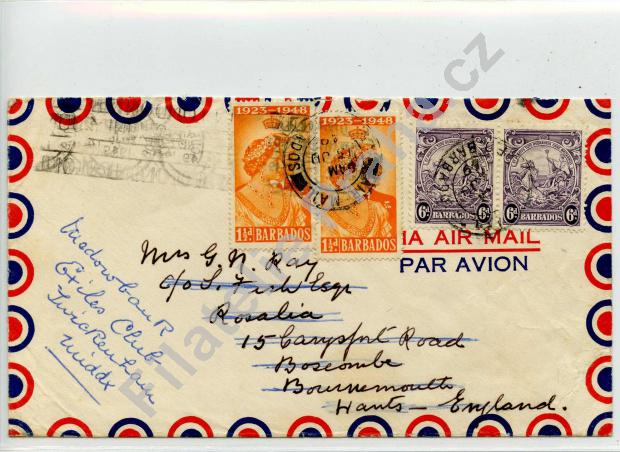 1923-1948
1½ᵈ BARBADOS
1923-1948
1½ᵈ BARBADOS
6ᵈ BARBADOS 6ᵈ
6ᵈ BARBADOS 6ᵈ
IA AIR MAIL
PAR AVION
Mrs G. N. Ray
c/o S. Fish Esqr
Rosalia
15 Carysfort Road
Boscombe
Bournemouth
Hants - England.
Meadowbank
Exiles Club
Twickenham
Middx